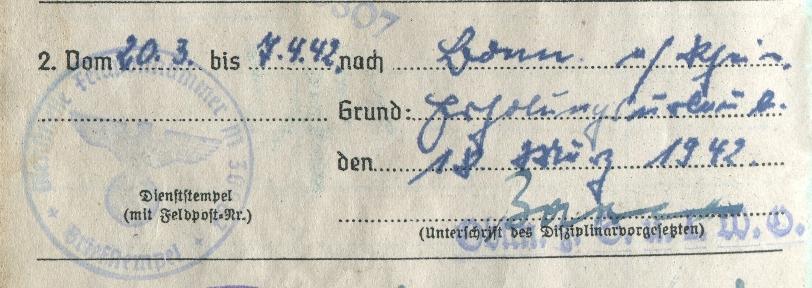 2. Vom 20. 3. bis 7.4.42 nach Bonn a/ Rhein.
Grund: Erholungsurlaub.
den 18 März 1942.
Dienststempel
(mit Feldpost-Nr.)
(Unterschrift des Disziplinarvorgesetzten)
Briefstempel